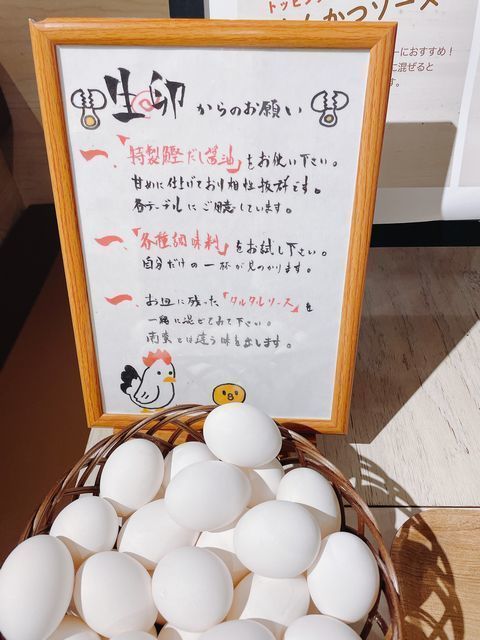 トッピング
んかつソース
ーにおすすめ!
に混ぜると
す。
生卵からのお願い
一、「特製鰹だし醤油」をお使い下さい。
甘めに仕上げており相性抜群です。
各テーブルにご用意しています。
一、「各種調味料」をお試し下さい。
自分だけの一杯が見つかります。
一、お皿に残った「タルタルソース」を
一緒に混ぜてみて下さい。
南蛮とは違う味を出します。